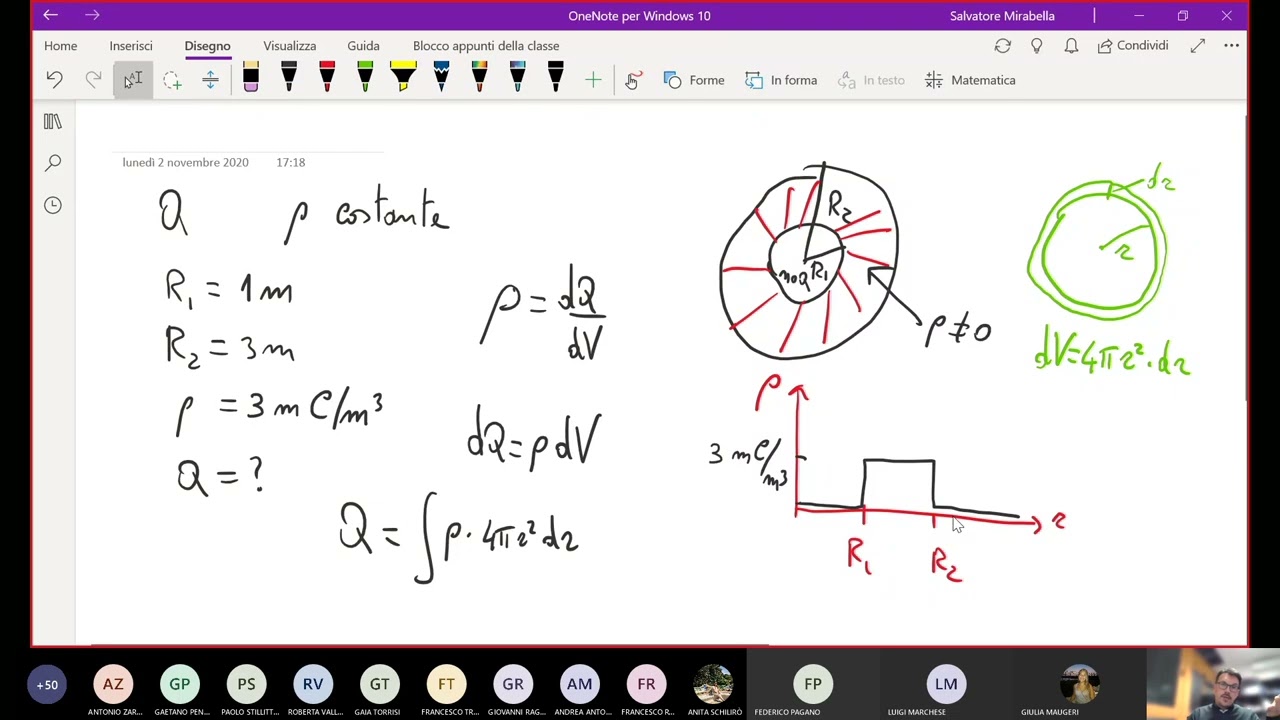 OneNote per Windows 10
Salvatore Mirabella
Home Inserisci Disegno Visualizza Guida Blocco appunti della classe
Condividi
Forme In forma In testo Matematica
lunedì 2 novembre 2020 17:18
Q ρ costante
R₁ = 1m
R₂ = 3m
ρ = 3 m C/m³
Q = ?
ρ = dQ/dV
dQ = ρ dV
Q = ∫ ρ · 4πr² dr
R₂
no Q R₁
ρ ≠ 0
dr
r
dV = 4πr² · dr
ρ
3 m C/m³
r
R₁ R₂
+50 AZ GP PS RV GT FT GR AM FR FP LM
ANTONIO ZAR... GAETANO PEN... PAOLO STILLITT... ROBERTA VALL... GAIA TORRISI FRANCESCO TR... GIOVANNI RAG... ANDREA ANTO... FRANCESCO R... ANITA SCHILIRÒ FEDERICO PAGANO LUIGI MARCHESE GIULIA MAUGERI